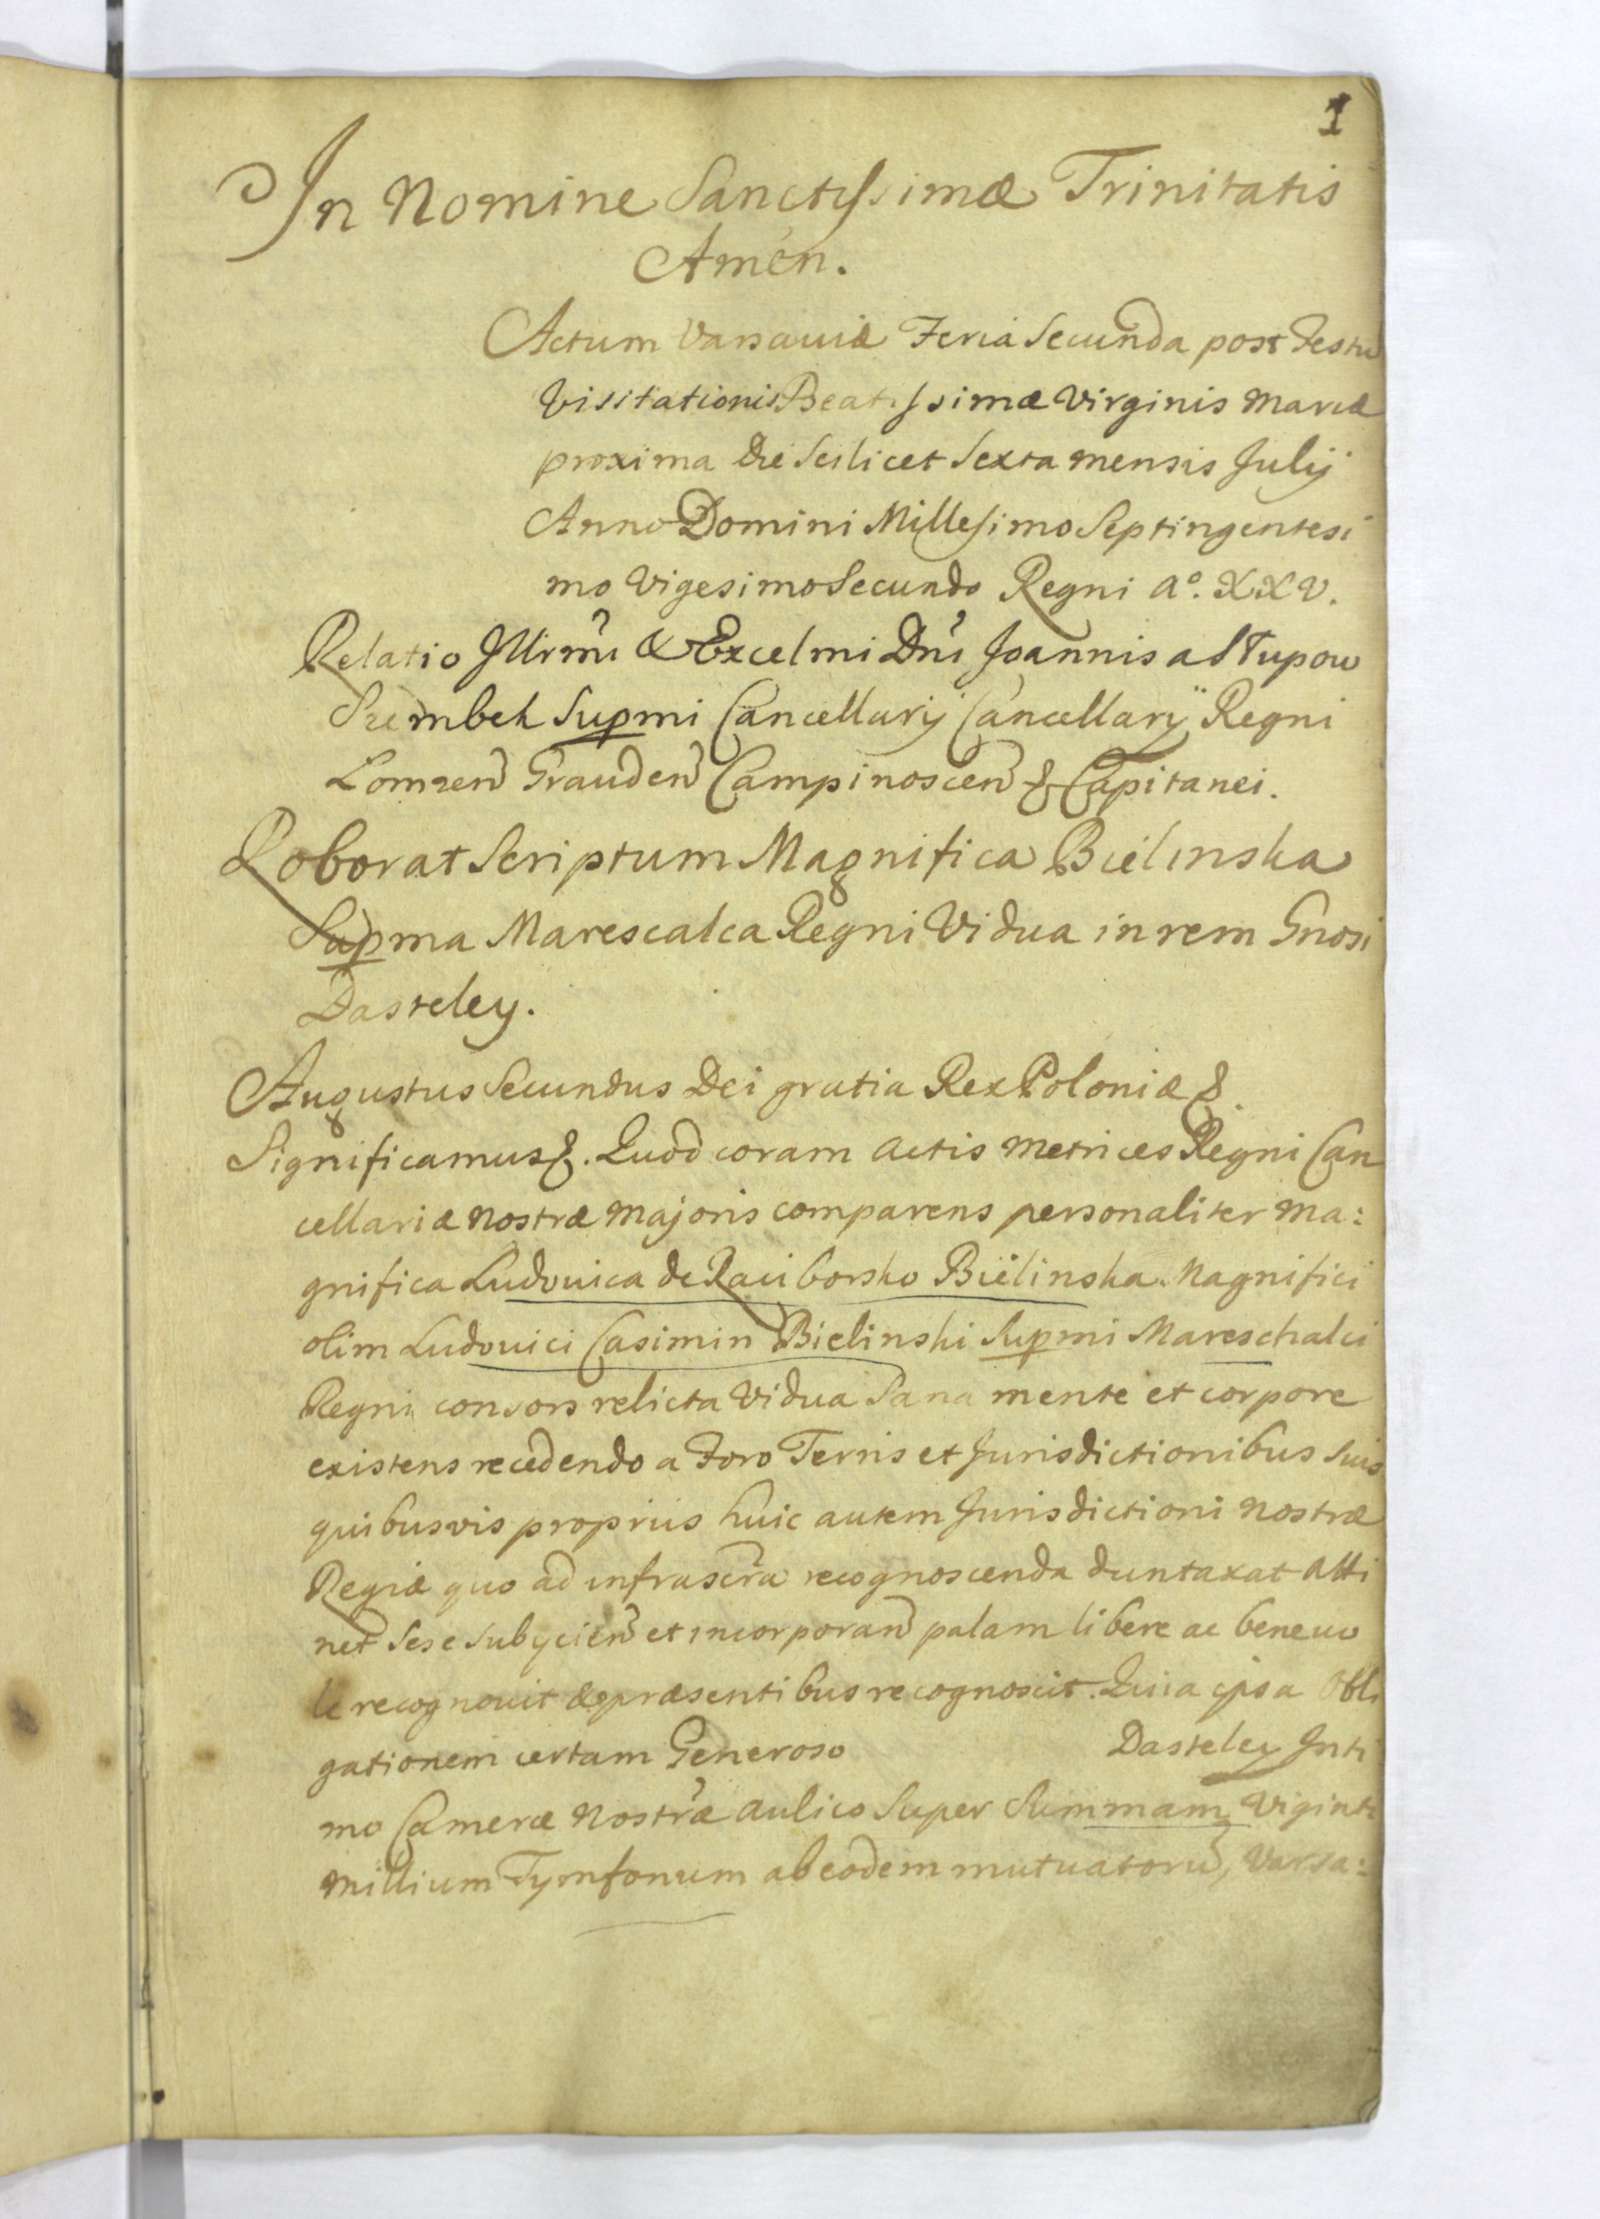 1
In Nomine Sanctissimæ Trinitatis
Amen.
Actum Varsaviæ Feria Secunda post Festu
Visitationis Beatissimæ Virginis Mariæ
proxima die Scilicet Sexta mensis Julij
Anno Domini Millesimo Septingentesi
mo Vigesimo Secundo Regni Aº. XXV.
Relatio Illrmi & Excelmi Dni Joannis a Stupow
Szembek Supmi Cancellarij Cancellarij Regni
Lomzen Grauden Campinoscen & Capitanei.
Roborat Scriptum Magnifica Bielinska
Supma Marescalca Regni Vidua in rem Gnosi
Dasteley.
Augustus Secundus Dei gratia Rex Poloniæ &.
Significamus &. Quod coram Actis Metrices Regni Can
cellariæ Nostræ Majoris comparens personaliter Ma:
gnifica Ludovica de Raciborsko Bielinska Magnifici
olim Ludovici Casimiri Bielinski Supmi Mareschalci
Regni consors relicta Vidua Sana mente et corpore
existens recedendo a Foro Terris et Jurisdictionibus Suis
quibusvis proprijs huic autem Jurisdictioni Nostræ
Regiæ quo ad infrascra recognoscenda duntaxat Atti
net Sese Subycien et incorporan palam libere ac benevo
le recognovit & præsentibus recognoscit. Quia ipsa Obli
gationem certam Generoso Dasteley Inti
mo Cameræ Nostræ Aulico Super Summam Viginti
Millium Tymfonum ab eodem mutuatoru, Varsa: